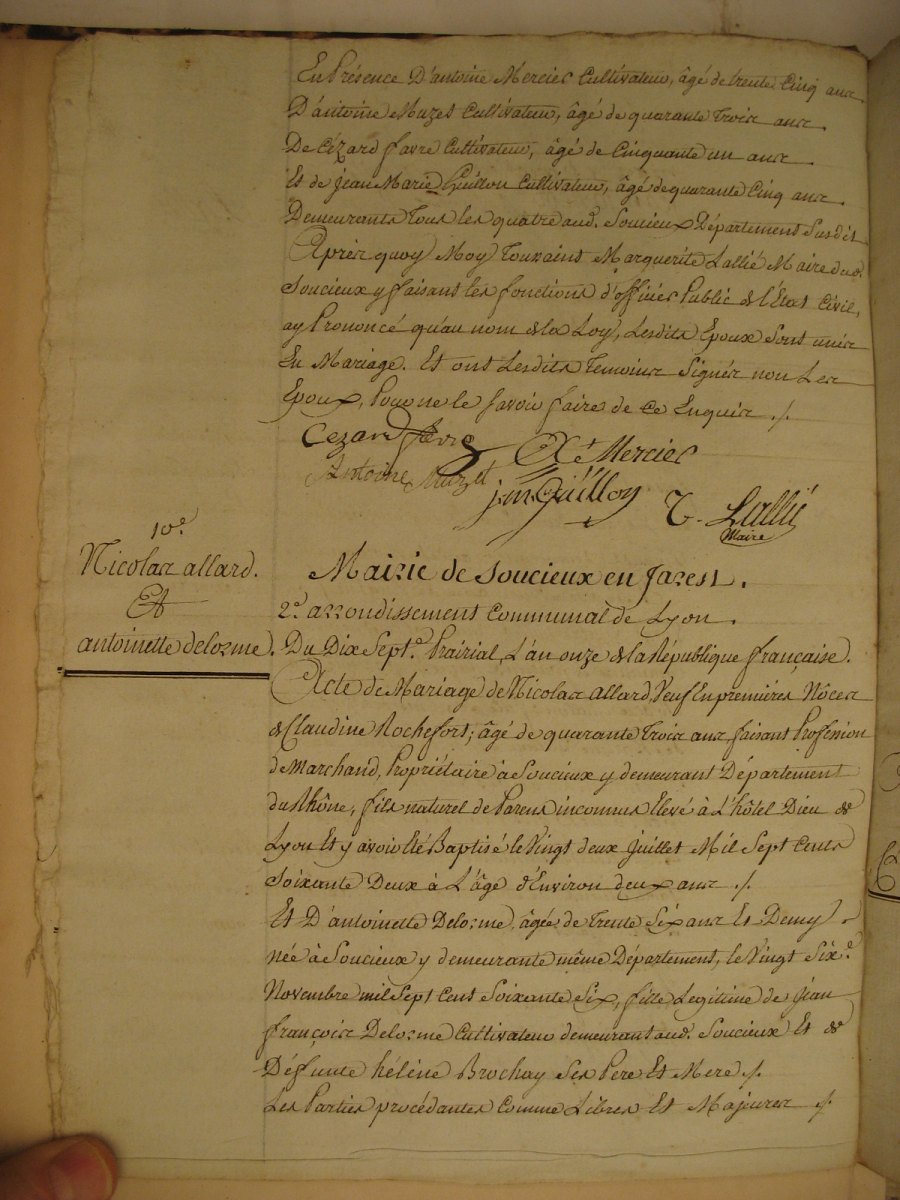 En Présence D'antoine Mercier Cultivateur, âgé de trente Cinq ans.
D'antoine Muzet Cultivateur, âgé de quarante trois ans.
De Cézard favre Cultivateur, âgé de Cinquante un ans
Et de jean Marie Guillon Cultivateur, âgé de quarante Cinq ans.
Demeurants tous les quatre aud. Soucieux Département Susdit
Après quoy Moy Toussaint Marguerite Lallié Maire dud.
Soucieux y faisant les fonctions d'officier Public de l'Etat Civil,
ay Prononcé qu'au nom de la Loy, Lesdits Epoux Sont unis
En Mariage. Et ont Lesdits temoins Signés non Les
Epoux, Pour ne le Savoir faire de Ce Enquis ./.
Cezard favre At Mercier
Antoine Muzet
j. m. Guillon T. Lallié
Maire
10e
Nicolas allard.
Et
antoinette delorme.
Mairie de Soucieux en Jarest.
2e. arrondissement Communal de Lyon.
Du Dix Sept.e Prairial, L'an onze de la République française.
Acte de Mariage de Nicolas allard, Veuf En premières Nôces
de Claudine Rochefort; âgé de quarante trois ans, faisant Profession
de Marchand, Propriétaire à Soucieux y demeurant Département
du Rhône, fils naturel de Parens inconnus Elevé à L'hôtel Dieu de
Lyon Et y avoir Eté Baptisé le Vingt deux juillet Mil Sept Cents
Soixante Deux à L'âge d'Environ deux ans ./.
Et D'antoinette Delorme, âgée de trente Six ans Et Demy
née à Soucieux y demeurante même Département, le Vingt Six.e
Novembre mil Sept Cent Soixante Six, fille Legitime de jean
françois Delorme Cultivateur demeurant aud. Soucieux Et de
Défunte hélène Brochay Ses Pere Et Mere ./.
Les Parties procédantes Comme Libres Et Majeures ./.